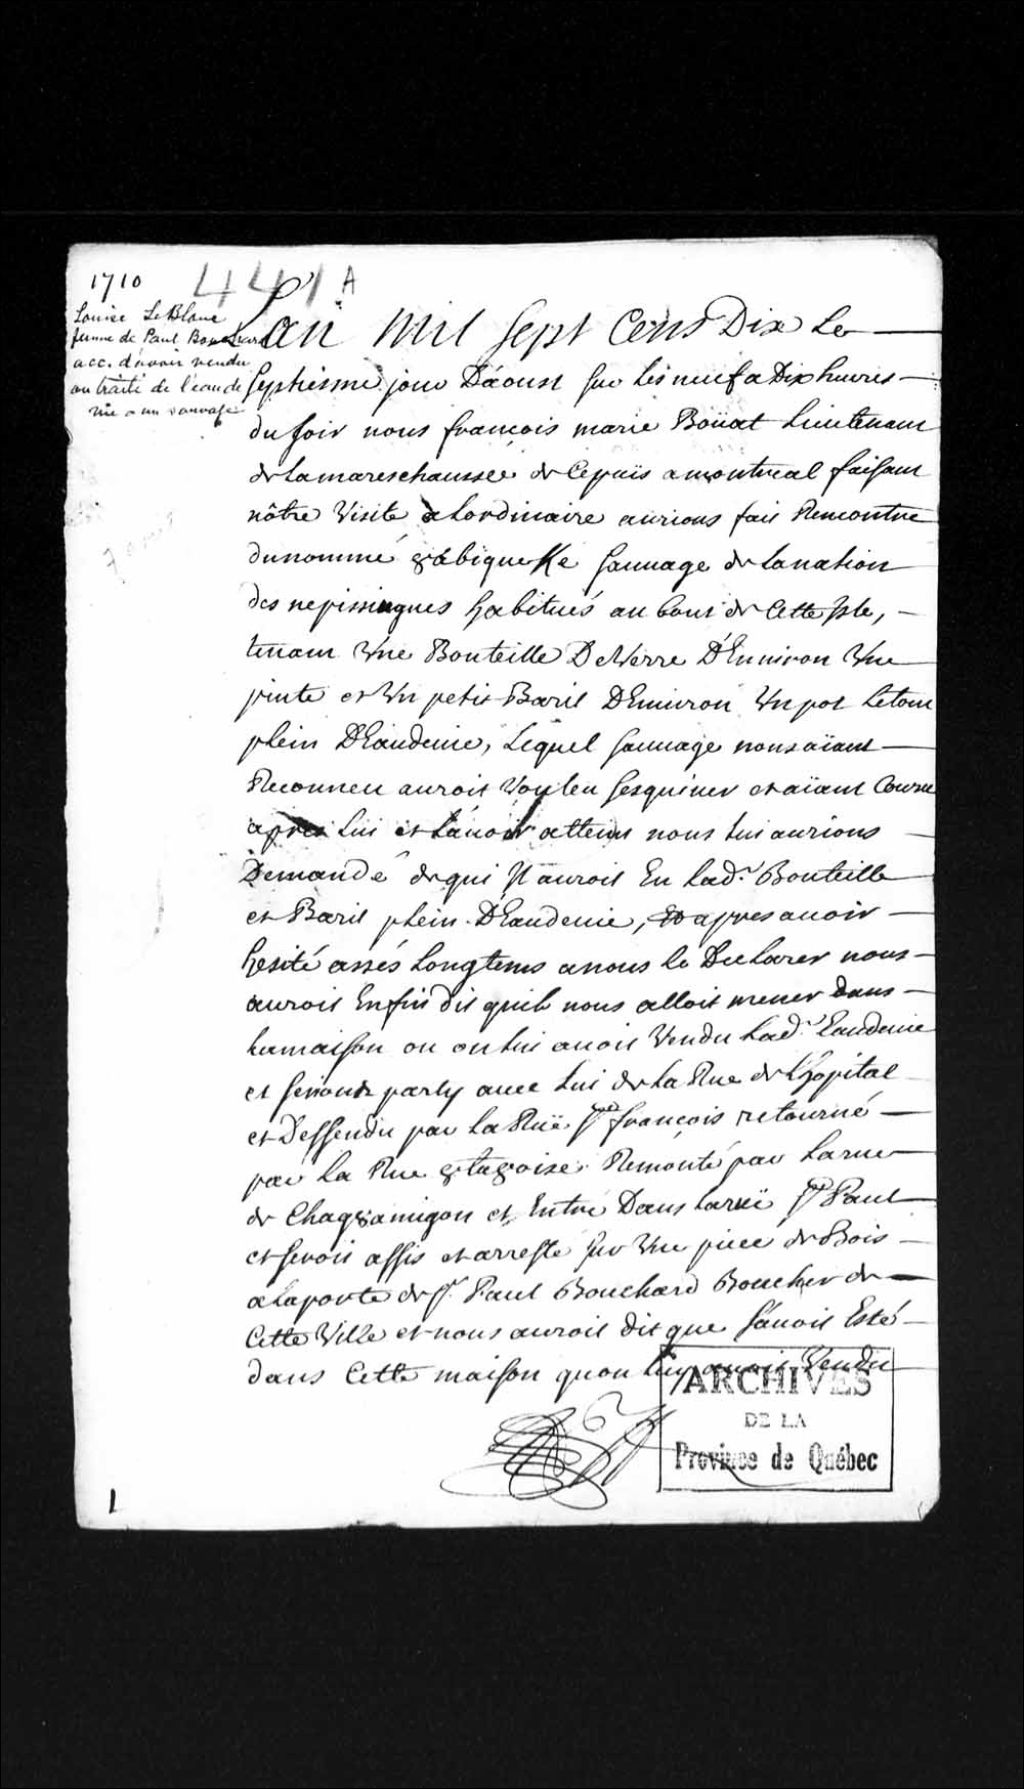 1710
441 A
Louise LeBlanc
femme de Paul Bouchard
acc. d'avoir vendu
ou traité de l'eau de
vie a un sauvage
Lan Mil Sept Cens Dix Le
Septiesme jour Dáoust sur les neuf a Dix heures
du soir nous françois marie Boüat Lieutenant
de La mareschaussée de Ce païs a montreal faisant
nôtre Visite a Lordinaire aurions fait Rencontre
du nommé 8abiquekke sauuage de La nation
des nepissingues habitués au bout de Cette Isle,
tenant Vne Bouteille De Verre D'Enuiron Vne
pinte et Vn petit Baril D'Enuiron Vn pot Le tout
plein D'Eaudeuie, Lequel sauuage nous aïant
Reconneu auroit Voulu sesquiuer et aïant Couru
apres Lui et L'auoir atteint nous Lui aurions
Demandé de qui Il auroit Eu Lad.e Bouteille
et Baril plein D'Eaudeuie, Et apres auoir
hesité assés Longtems a nous le Declarer nous
auroit Enfin dit quil nous alloit mener dans
La maison ou on Lui auoit Vendu Lad.e Eaudeuie
et party auec Lui de La Rue de L'hopital
et Dessendu par La Ruë St françois retourné
par La Rue 8ta8oise Remonté par La rue
de Chag8amigon et Entré Dans La ruë St Paul
et seroit assis et arresté sur Vne piece de Bois
a La porte de Sr. Paul Bouchard Boucher de
Cette Ville et nous auroit dit que s'auoit Esté
dans Cette maison quon Luy auoit Vendu
ARCHIVES
DE LA
Province de Québec
1